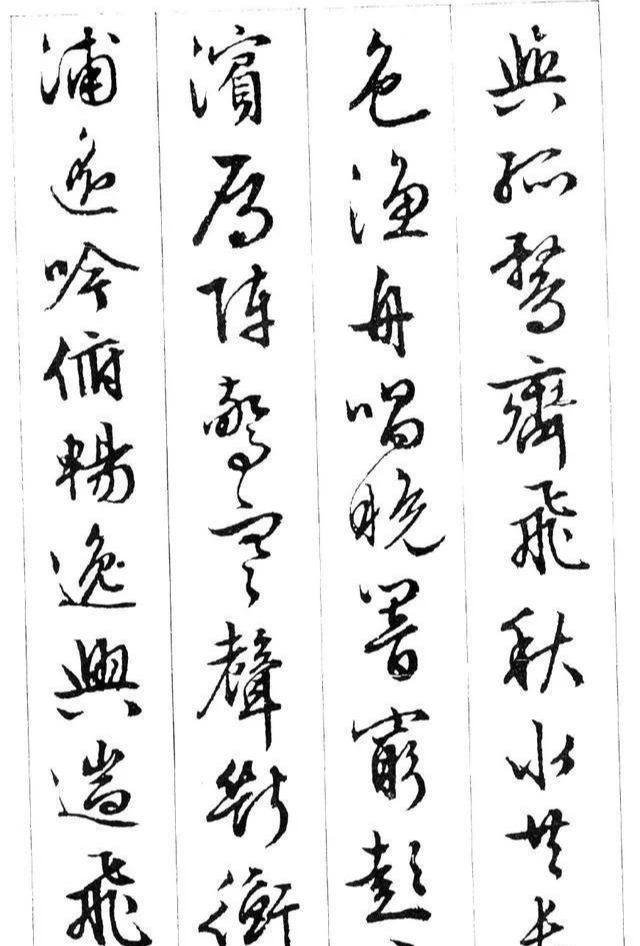 與孤鶩齊飛秋水共長
色漁舟唱晚響窮彭
濱鴈陣驚寒聲斷衡
浦遥吟俯暢逸興遄飛